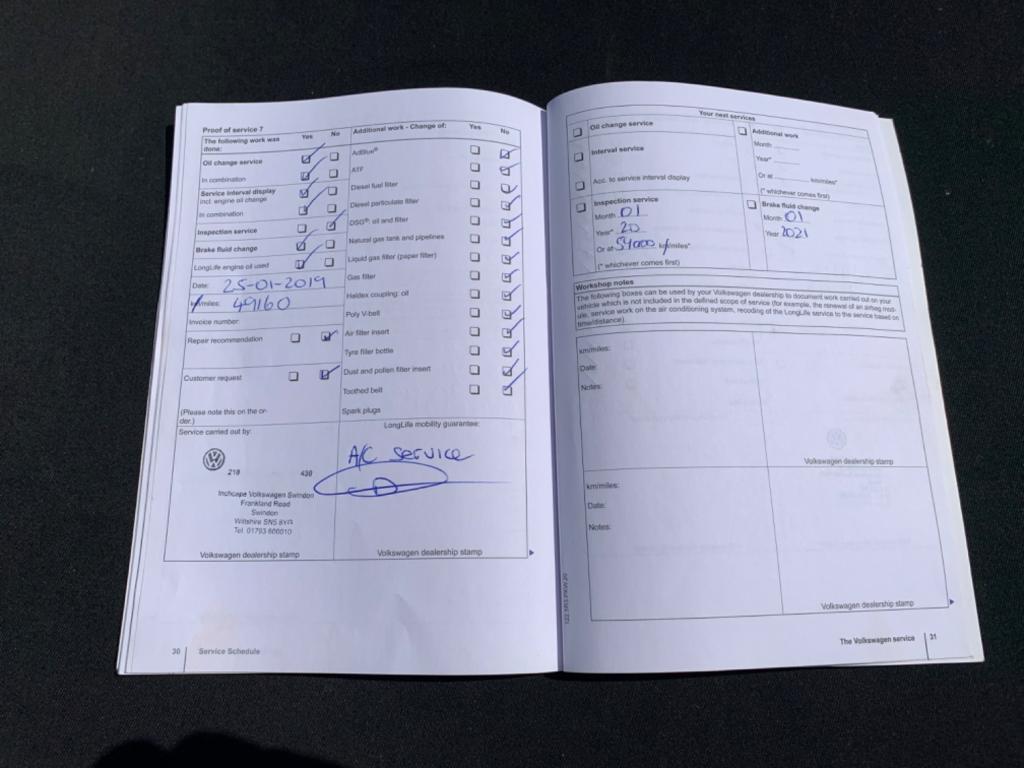 Proof of service 7
The following work was done:
Yes No
Oil change service
In combination
Service interval display
incl. engine oil change
In combination
Inspection service
Brake fluid change
LongLife engine oil used
Date: 25-01-2019
km/miles: 49160
Invoice number:
Repair recommendation
Customer request
(Please note this on the or-
der.)
Additional work - Change of: Yes No
AdBlue®
ATF
Diesel fuel filter
Diesel particulate filter
DSG®: oil and filter
Natural gas tank and pipelines
Liquid gas filter (paper filter)
Gas filter
Haldex coupling: oil
Poly V-belt
Air filter insert
Tyre filler bottle
Dust and pollen filter insert
Toothed belt
Spark plugs
Service carried out by:
218 430
Inchcape Volkswagen Swindon
Frankland Road
Swindon
Wiltshire SN5
Tel. 01793
Volkswagen dealership stamp
LongLife mobility guarantee:
A/C service
Volkswagen dealership stamp
30 Service Schedule
Your next services
Oil change service
Interval service
Acc. to service interval display
Inspection service
Month 01
Year* 20
Or at 54000 km/miles*
(* whichever comes first)
Additional work
Month
Year*
Or at km/miles*
(* whichever comes first)
Brake fluid change
Month 01
Year 2021
Workshop notes
The following boxes can be used by your Volkswagen dealership to document work carried out on your
vehicle which is not included in the defined scope of service (for example, the renewal of an airbag mod-
ule, service work on the air conditioning system, recoding of the LongLife service to the service based on
time/distance).
km/miles:
Date:
Notes:
Volkswagen dealership stamp
km/miles:
Date:
Notes:
Volkswagen dealership stamp
The Volkswagen service 31